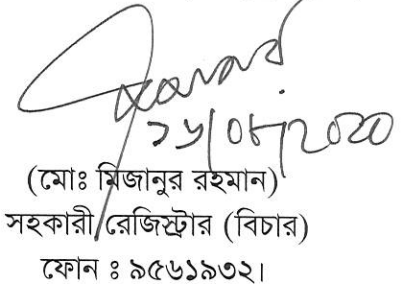 ১৬/০৮/২০২০
(মোঃ মিজানুর রহমান)
সহকারী রেজিস্ট্রার (বিচার)
ফোন ঃ ৯৫৬১৯৩২।